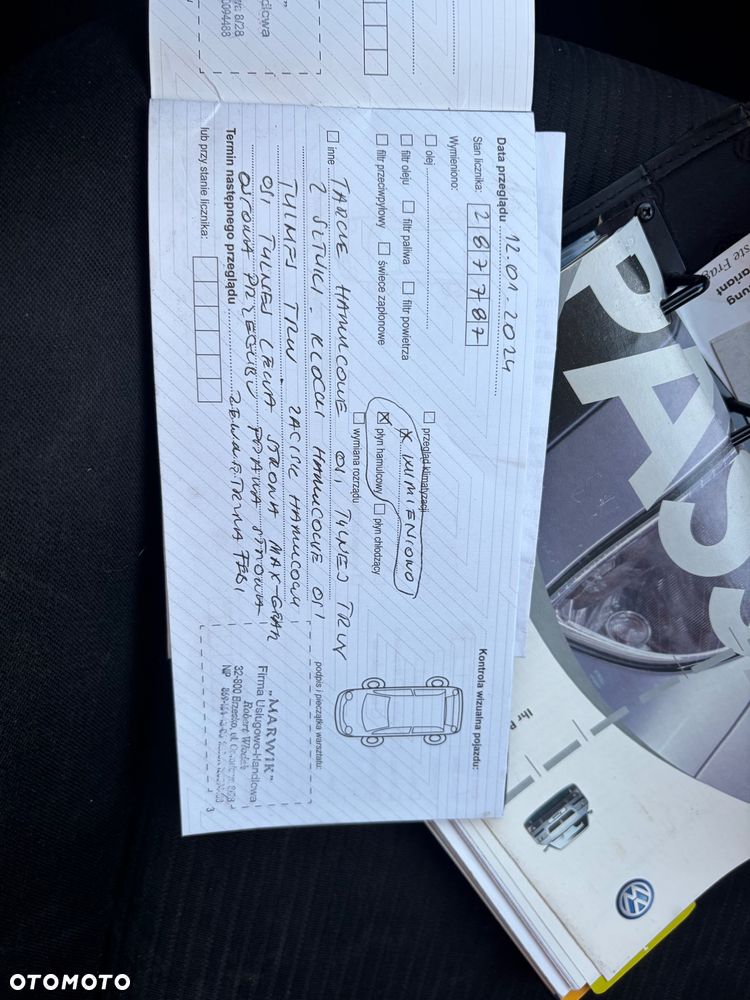 Data przeglądu 12.01.2024
Stan licznika: 287787
Wymieniono:
olej
filtr oleju filtr paliwa filtr powietrza
filtr przeciwpyłowy świece zapłonowe
przegląd klimatyzacji
X WYMIENIONO
płyn hamulcowy płyn chłodzący
wymiana rozrządu
inne TARCZE HAMULCOWE OSI TYLNEJ TRW
2 SZTUKI. KLOCKI HAMULCOWE OSI
TYLNEJ TRW. ZACISK HAMULCOWY
OSI TYLNEJ LEWA STRONA MAX-GEAR
OSŁONA PRZEGUBU PRAWA STRONA
ZEWNĘTRZNA FEBI
Termin następnego przeglądu
lub przy stanie licznika:
Kontrola wizualna pojazdu:
podpis i pieczątka warsztatu:
„MARWIK”
Firma Usługowo-Handlowa
Robert Włodek
32-800 Brzesko, ul.
NIP
3
ndlowa
8/28
PASS
Ihr P
ste Frag
ung
ariant
OTOMOTO